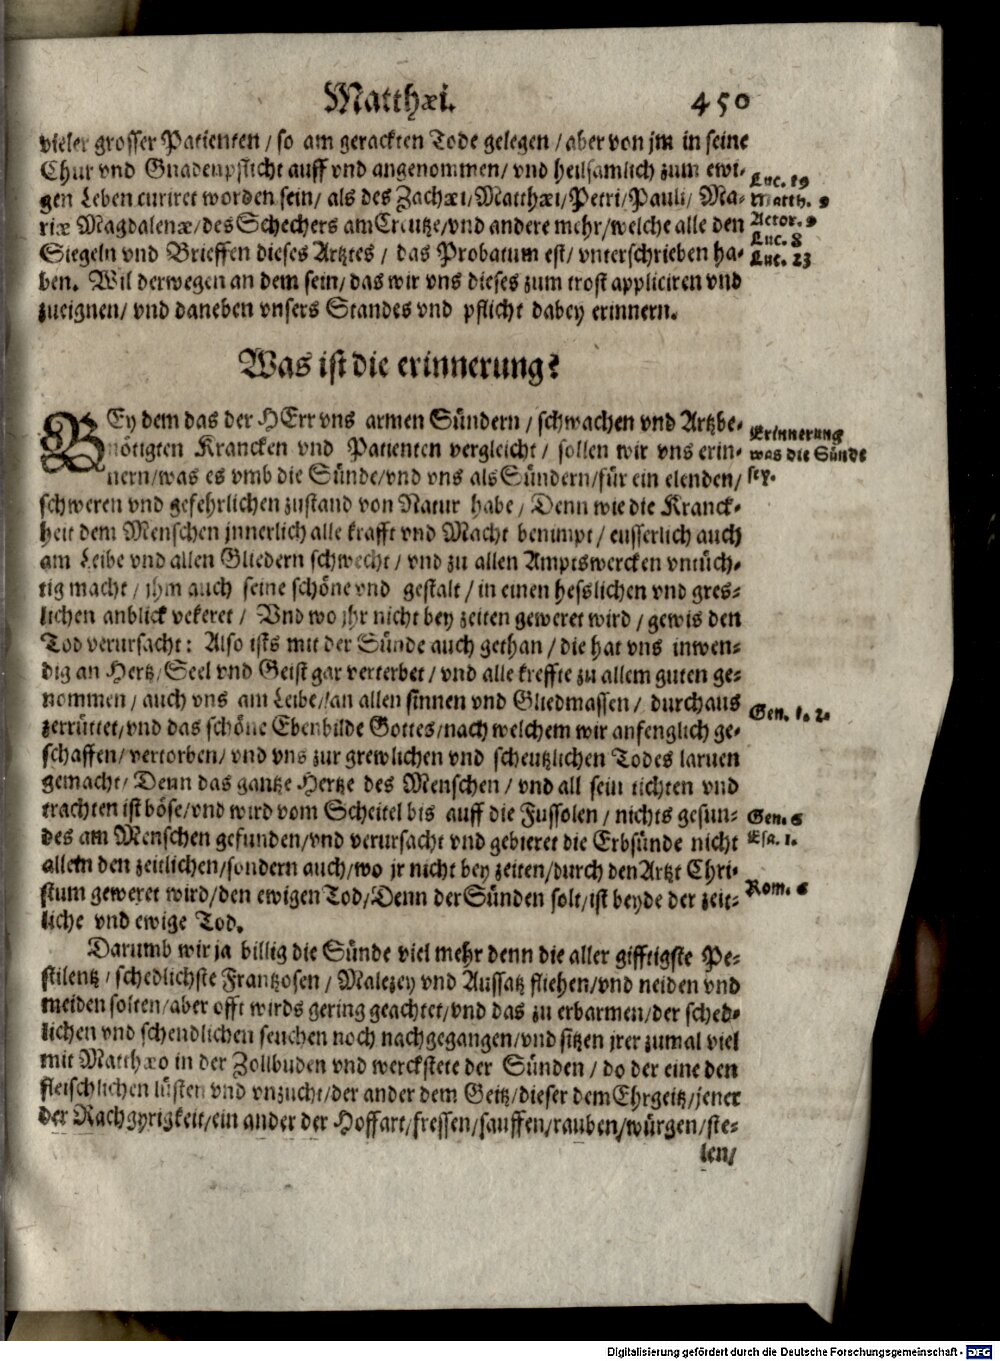 Matthæi. 450
vieler grosser Patienten / so am gerackten Tode gelegen / aber von jm in seine
Chur vnd Gnadenpflicht auff vnd angenommen / vnd heilsamlich zum ewi-
gen Leben curiret worden sein / als des Zachæi / Matthæi / Petri / Pauli / Ma-
riæ Magdalenæ / des Schechers am Creutze / vnd andere mehr / welche alle den
Siegeln vnd Brieffen dieses Artztes / das Probatum est / vnterschrieben ha-
ben. Wil derwegen an dem sein / das wir vns dieses zum trost appliciren vnd
zueignen / vnd daneben vnsers Standes vnd pflicht dabey erinnern.
Luc. 19
Matth. 9
Actor. 9
Luc. 8
Luc. 23
Was ist die erinnerung?
BEy dem das der HErr vns armen Sündern / schwachen vnd Artzbe-
nötigten Krancken vnd Patienten vergleicht / sollen wir vns erin-
nern / was es vmb die Sünde / vnd vns als Sündern / für ein elenden /
schweren vnd gefehrlichen zustand von Natur habe / Denn wie die Kranck-
heit dem Menschen jnnerlich alle krafft vnd Macht benimpt / eusserlich auch
am Leibe vnd allen Gliedern schwecht / vnd zu allen Amptswercken vntüch-
tig macht / jhm auch seine schöne vnd gestalt / in einen hesslichen vnd gres-
lichen anblick vekeret / Vnd wo jhr nicht bey zeiten geweret wird / gewis den
Tod verursacht: Also ists mit der Sünde auch gethan / die hat vns inwen-
dig an Hertz / Seel vnd Geist gar verterbet / vnd alle kreffte zu allem guten ge-
nommen / auch vns am Leibe / an allen sinnen vnd Gliedmassen / durchaus
zerrüttet / vnd das schöne Ebenbilde Gottes / nach welchem wir anfenglich ge-
schaffen / vertorben / vnd vns zur grewlichen vnd scheutzlichen Todes laruen
gemacht / Denn das gantze Hertze des Menschen / vnd all sein tichten vnd
trachten ist böse / vnd wird vom Scheitel bis auff die Fussolen / nichts gesun-
des am Menschen gefunden / vnd verursacht vnd gebieret die Erbsünde nicht
allein den zeitlichen / sondern auch / wo jr nicht bey zeiten / durch den Artzt Chri-
stum geweret wird / den ewigen Tod / Denn der Sünden solt / ist beyde der zeit-
liche vnd ewige Tod.
Erinnerung
was die Sünde
sey.
Gen. 1. 2.
Gen. 6
Esa. 1.
Rom. 6
Darumb wir ja billig die Sünde viel mehr denn die aller gifftigste Pe-
stilentz / schedlichste Frantzosen / Malezey vnd Aussatz fliehen / vnd neiden vnd
meiden solten / aber offt wirds gering geachtet / vnd das zu erbarmen / der sched-
lichen vnd schendlichen seuchen noch nachgegangen / vnd sitzen jrer zumal viel
mit Matthæo in der Zollbuden vnd werckstete der Sünden / do der eine den
fleischlichen lüsten vnd vnzucht / der ander dem Geitz / dieser dem Ehrgeitz / jener
der Rachgyrigkeit / ein ander der Hoffart / fressen / sauffen / rauben / würgen / ste-
len /
Digitalisierung gefördert durch die Deutsche Forschungsgemeinschaft - DFG